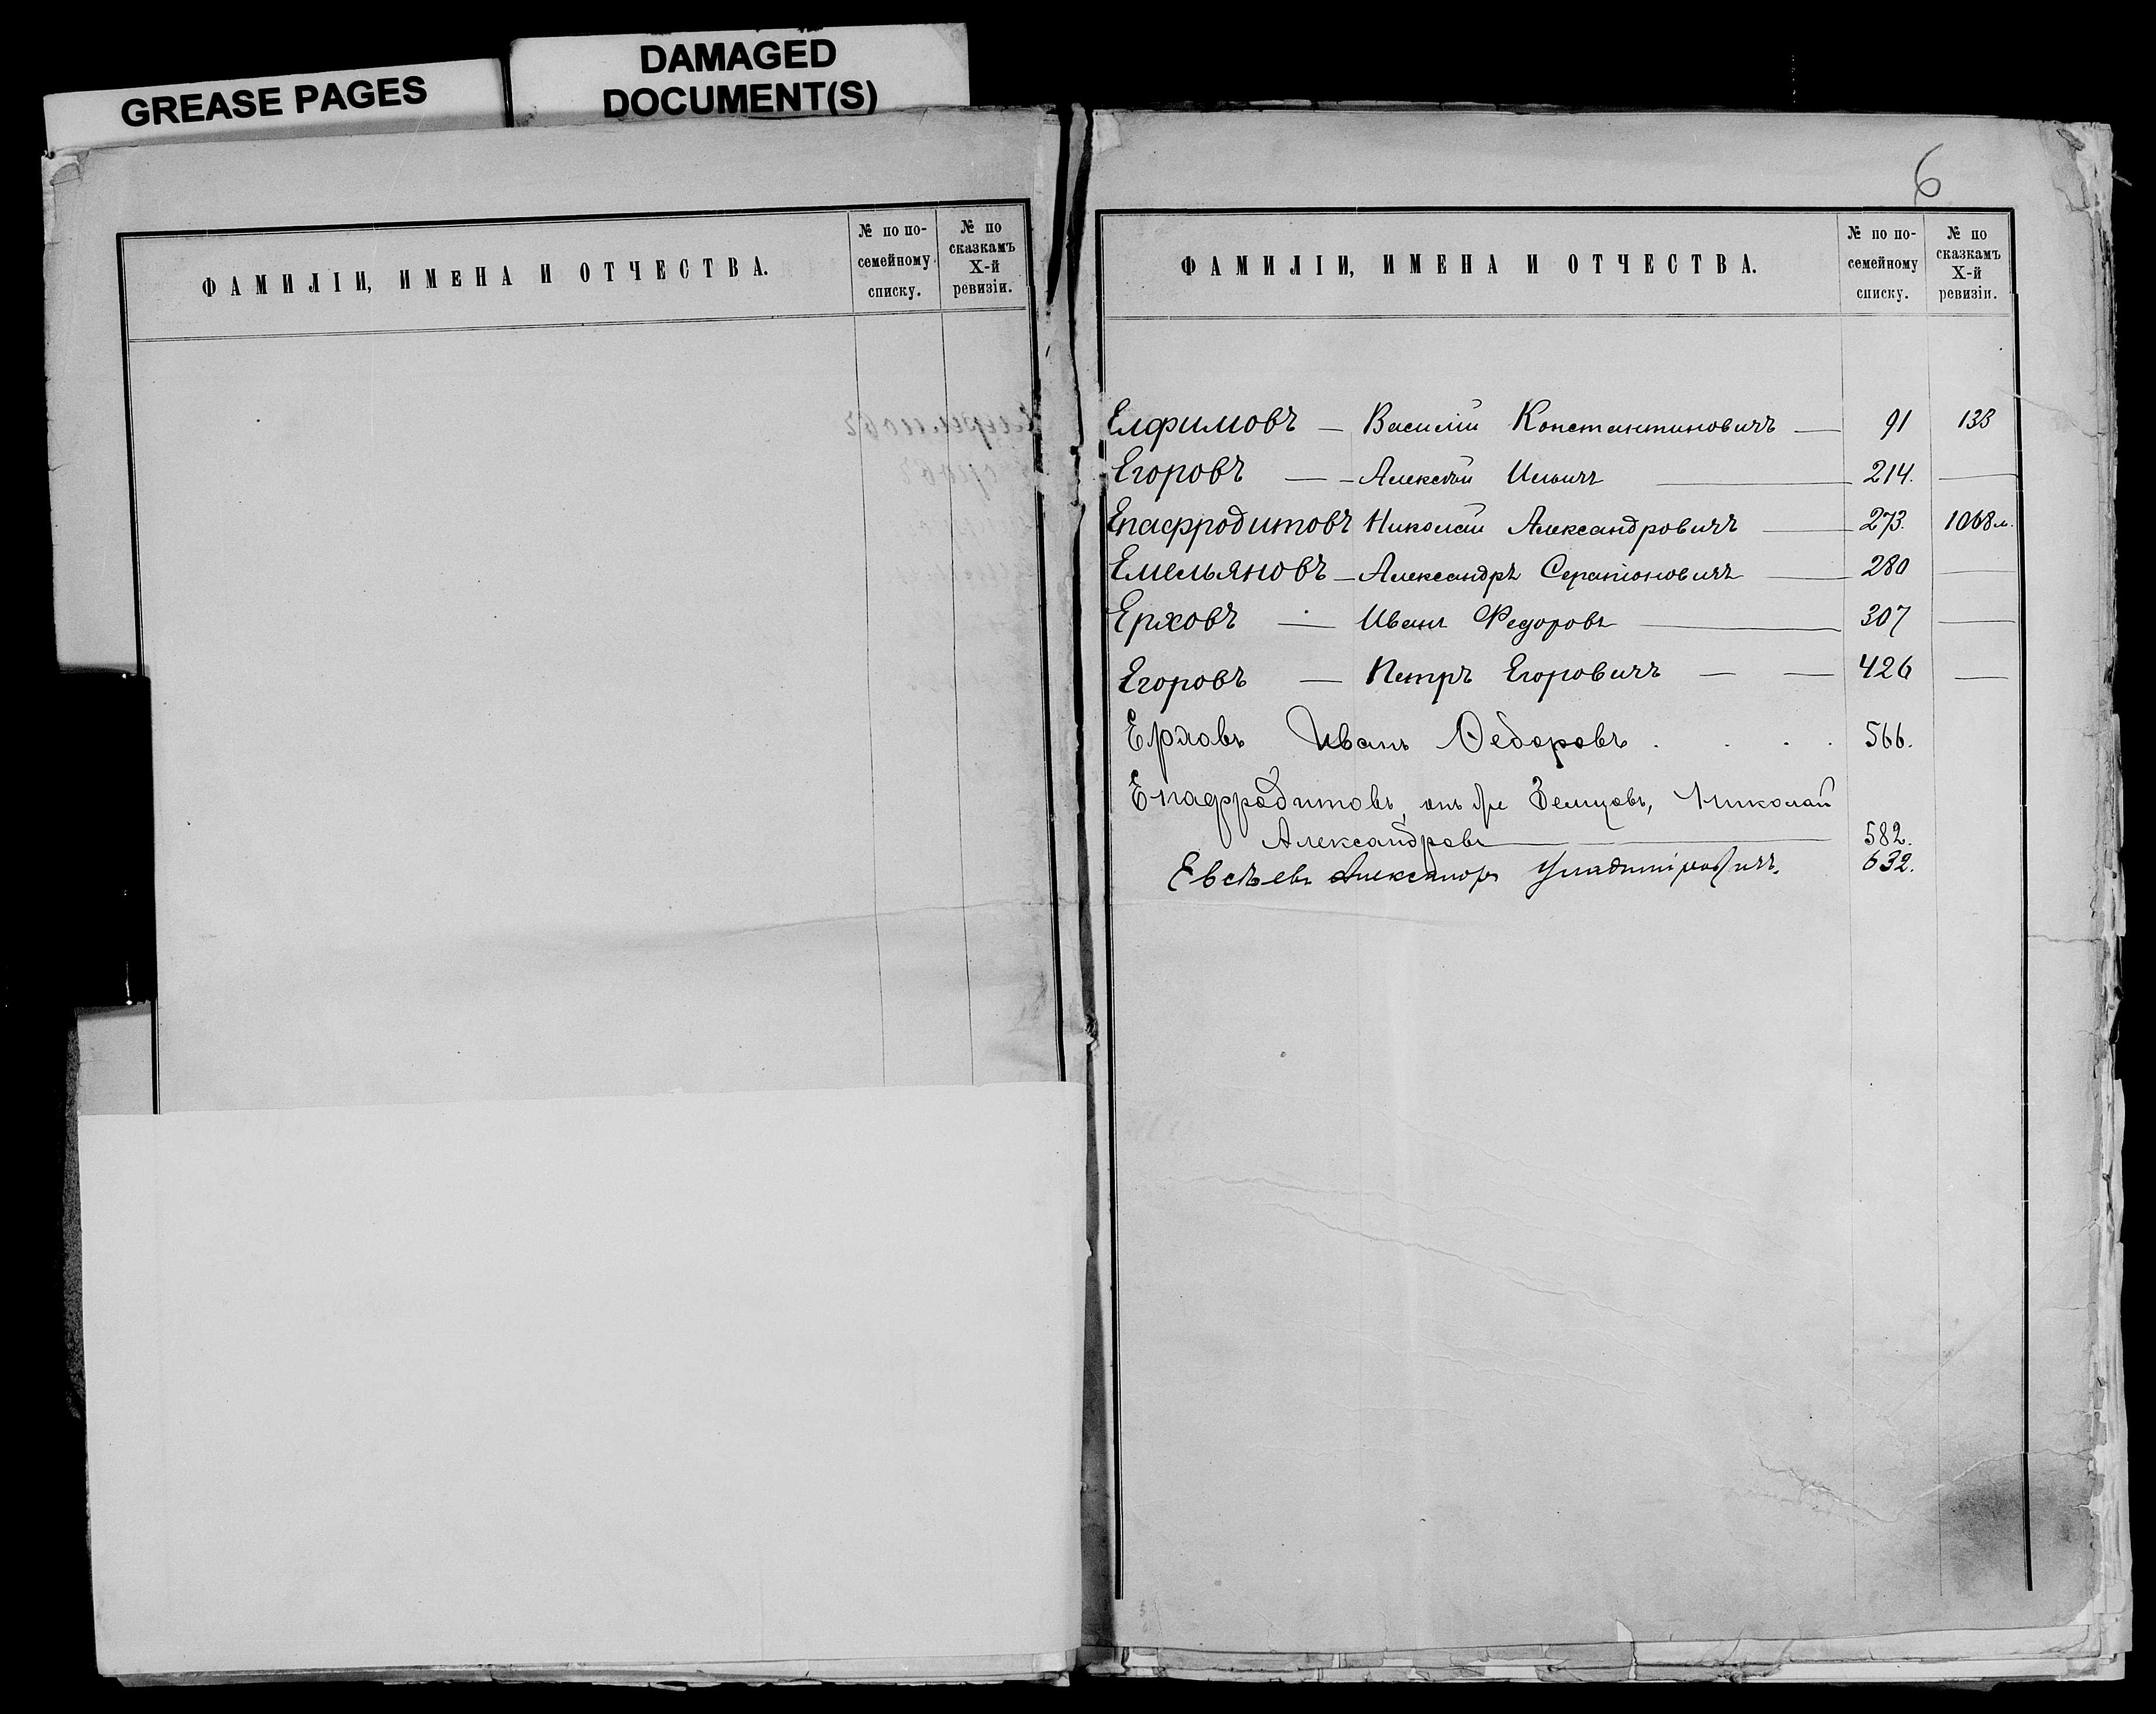 GREASE PAGES
DAMAGED
DOCUMENT(S)
ФАМИЛІИ, ИМЕНА И ОТЧЕСТВА.
№ по по-
семейному
списку.
№ по
сказкамъ
X-й
ревизіи.
6
ФАМИЛІИ, ИМЕНА И ОТЧЕСТВА.
№ по по-
семейному
списку.
№ по
сказкамъ
X-й
ревизіи.
Елфимовъ — Василій Константиновичъ — 91 133
Егоровъ — Алексѣй Ильичъ — 214. —
Епафродитовъ Николай Александровичъ — 273. 1068
Емельяновъ — Александръ — 280 —
Ерховъ — Иванъ Федоровъ — 307 —
Егоровъ — Петръ Егоровичъ — 426 —
Ерховъ Иванъ Ѳедоровъ . . . . 566.
Епафродитовъ, онъ же Земцовъ, Николай
Александровъ — 582.
Евсѣевъ Александръ 632.